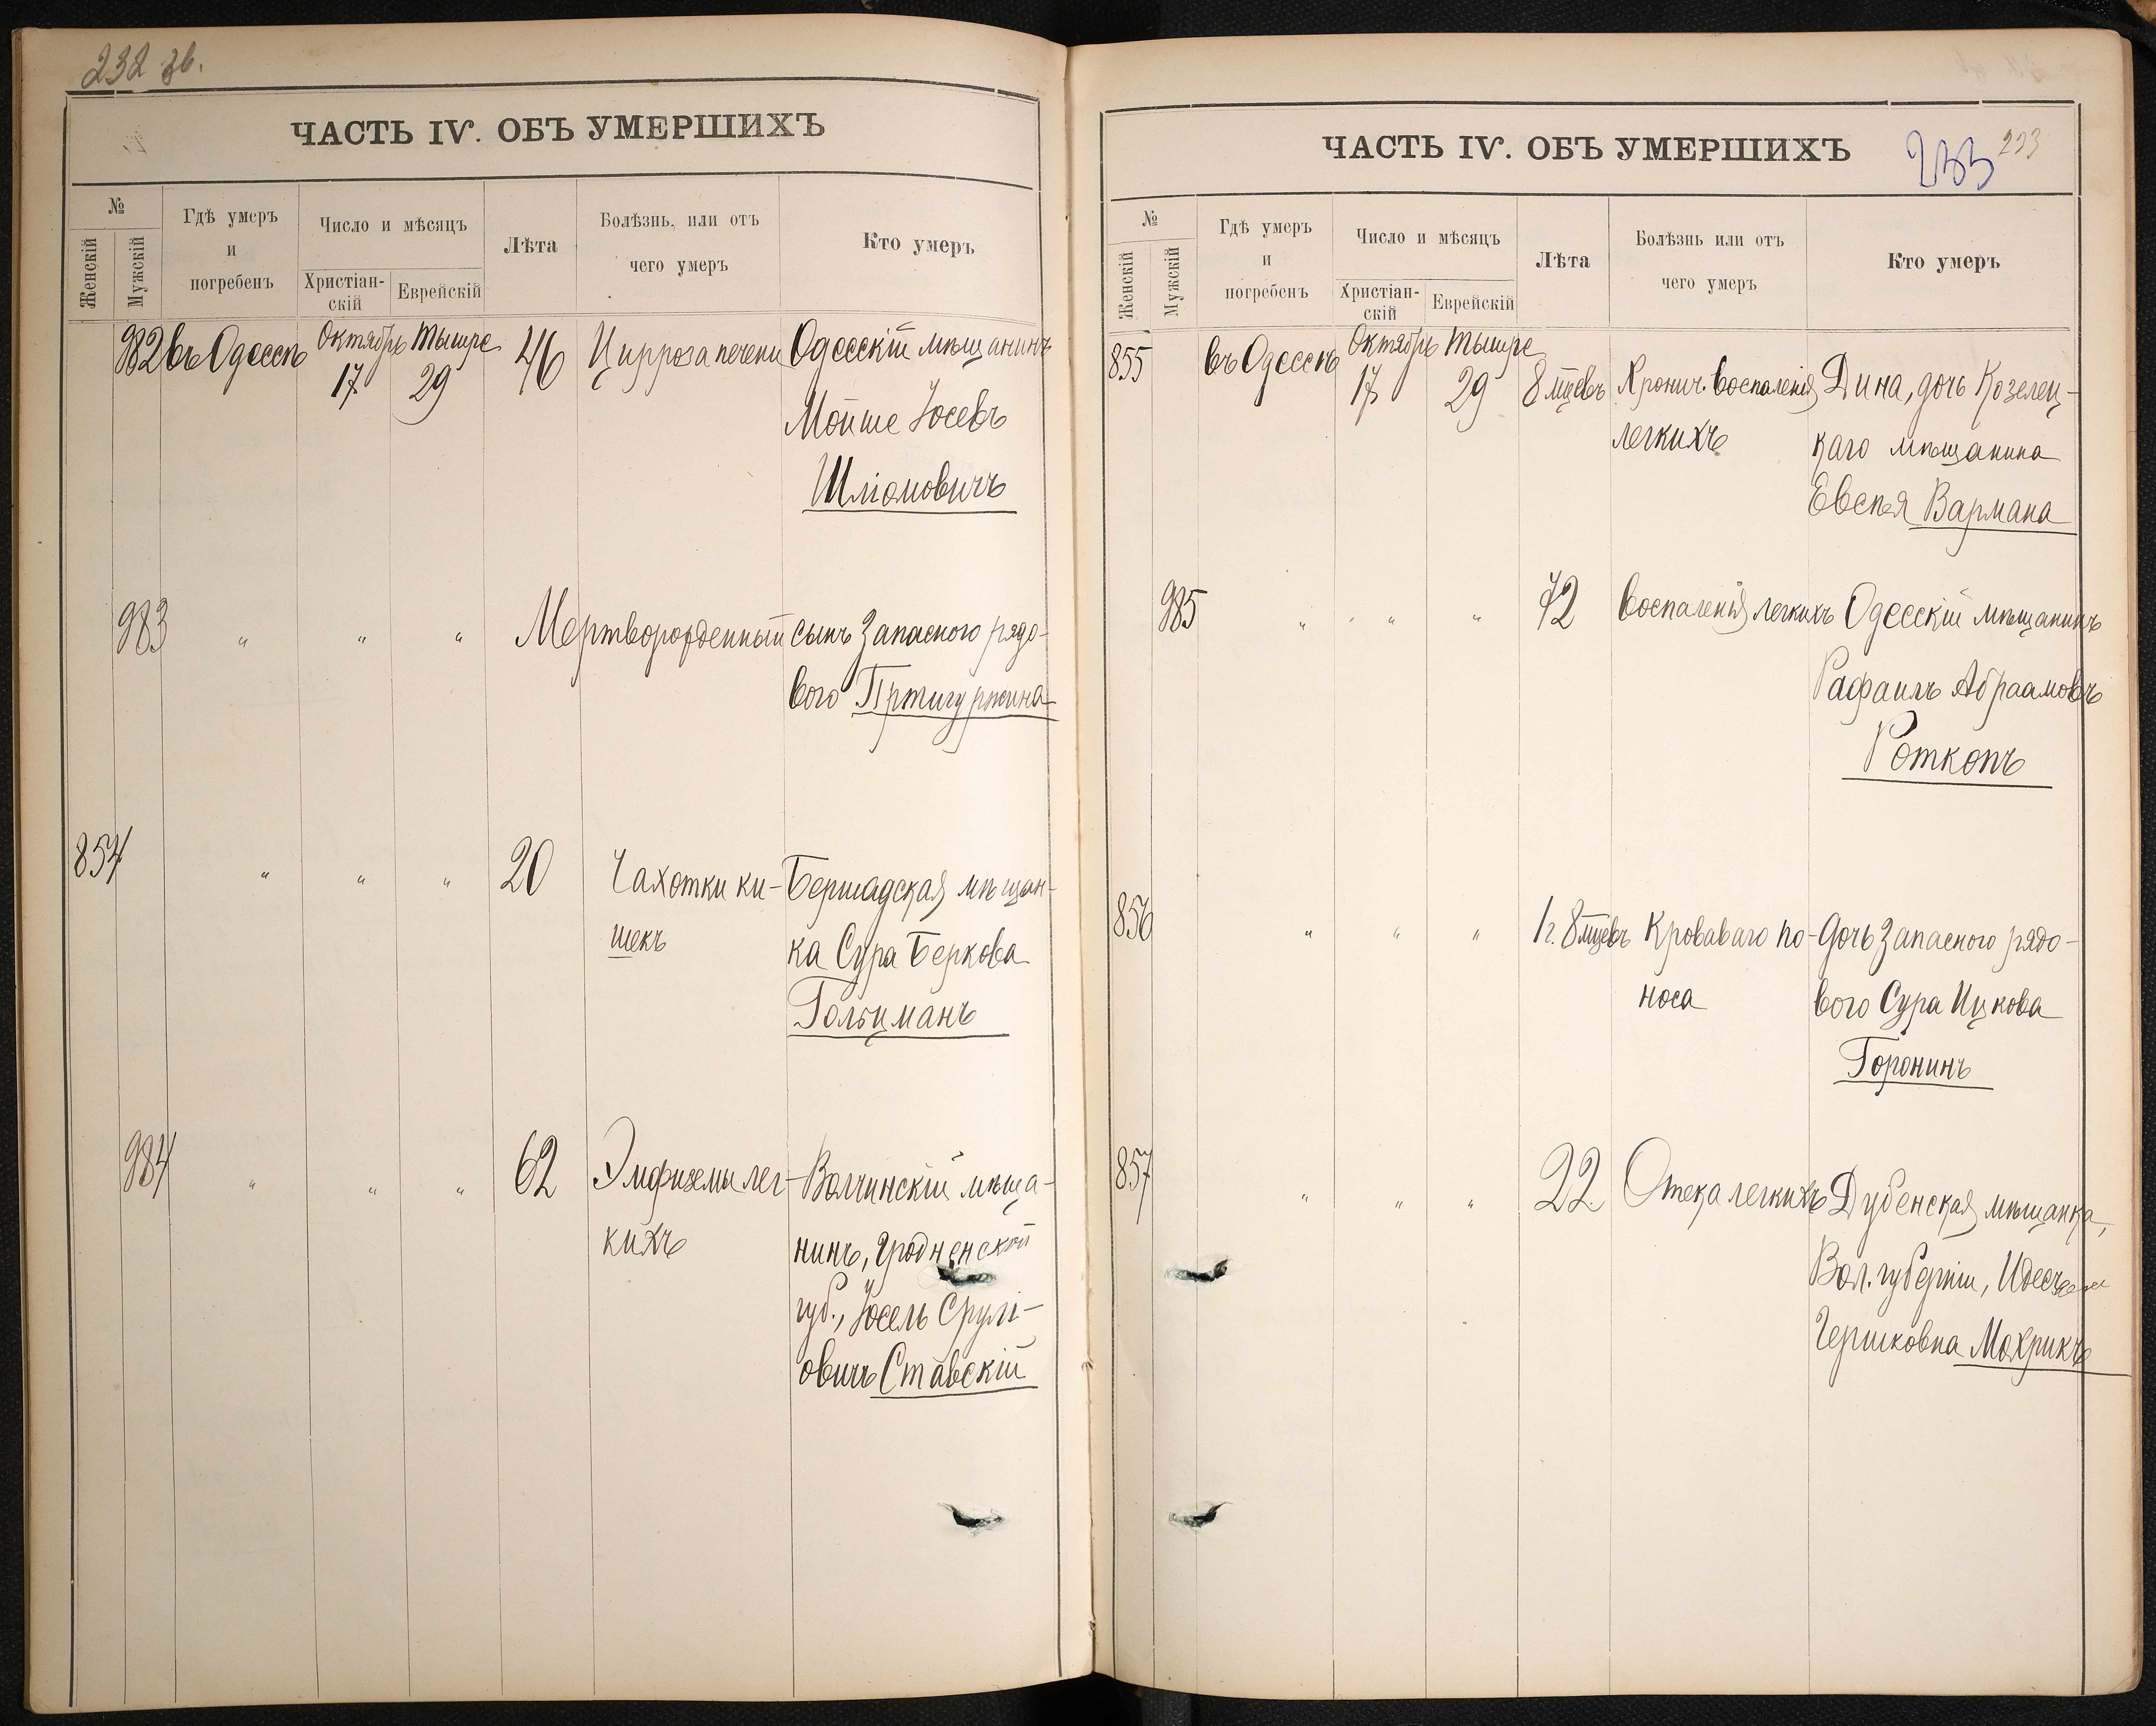 232 зв.
ЧАСТЬ IV. ОБЪ УМЕРШИХЪ
№
Женскій
Мужскій
Гдѣ умеръ
и
погребенъ
Число и мѣсяцъ
Христіан-
скій
Еврейскій
Лѣта
Болѣзнь, или отъ
чего умеръ
Кто умеръ
982 въ Одессѣ Октябрь 17 Тышре 29 46 Цирроза печени Одесскій мѣщанинъ
Мойше Іосевъ
Шліомовичъ
983 " " " Мертворожденный сынъ Запасного рядо-
вого
854 " " " 20 Чахотки ки- Бершадская мѣщан-
шекъ ка Сура Беркова
Гольцманъ
984 " " " 62 Эмфиземы лег- Волчинскій мѣща-
кихъ нинъ, Гродненской
губ., Іосель Срулі-
овичъ Ставскій
ЧАСТЬ IV. ОБЪ УМЕРШИХЪ
233
233
№
Женскій
Мужскій
Гдѣ умеръ
и
погребенъ
Число и мѣсяцъ
Христіан-
скій
Еврейскій
Лѣта
Болѣзнь или отъ
чего умеръ
Кто умеръ
855 въ Одессѣ Октябрь 17 Тышре 29 8 мцевъ Хронич. воспаленія Дина, дочь Козелец-
легкихъ каго мѣщанина
Евсѣя Вармана
985 " " " 72 Воспаленія легкихъ Одесскій мѣщанинъ
Рафаилъ Абраамовъ
Роткопъ
856 " " " 1 г. 8 мцевъ Кроваваго по- дочь Запасного рядо-
носа вого Сура Ицкова
Горонинъ
857 " " " 22 Отека легкихъ Дубенская мѣщанка,
Вол. губерніи,
Гершковна Мохрикъ